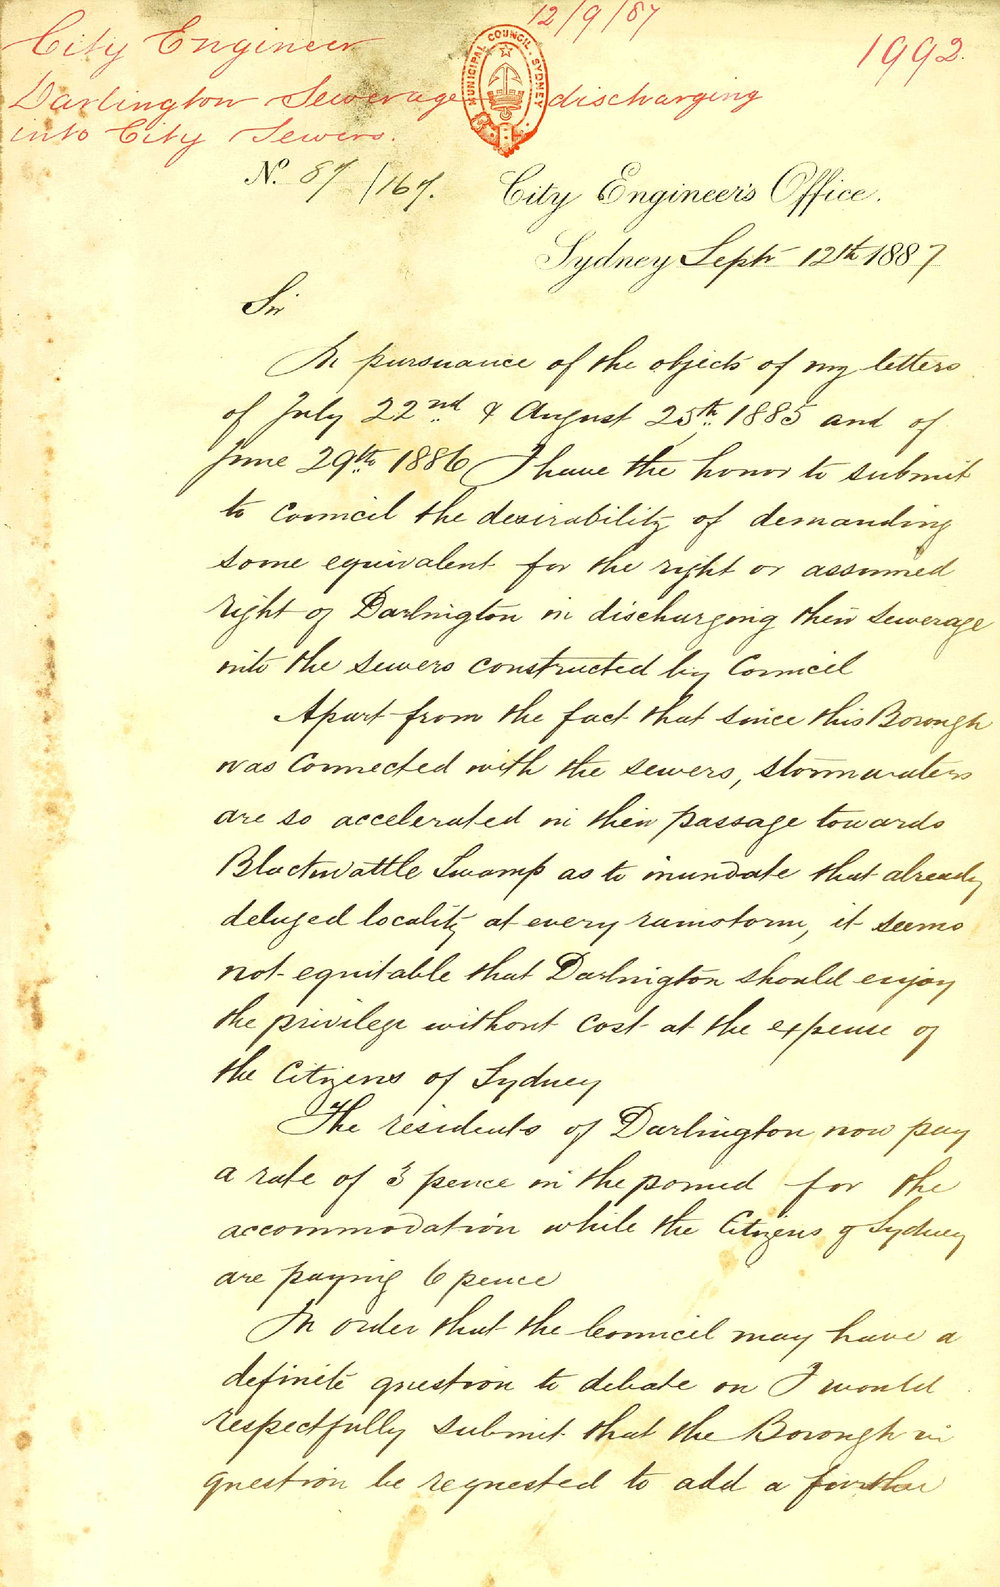 12/9/87
City Engineer
1992.
Darlington Sewerage discharging
into City Sewers.
MUNICIPAL COUNCIL · SYDNEY
No. 87/167. City Engineer's Office.
Sydney Septr 12th 1887
Sir
In pursuance of the objects of my letters
of July 22nd & August 25th 1885 and of
June 29th 1886 I have the honor to submit
to Council the desirability of demanding
some equivalent for the right or assumed
right of Darlington in discharging their sewerage
into the sewers constructed by Council
Apart from the fact that since this Borough
was connected with the sewers, stormwaters
are so accelerated in their passage towards
Blackwattle Swamp as to inundate that already
deluged locality at every rainstorm, it seems
not equitable that Darlington should enjoy
the privilege without cost at the expense of
the Citizens of Sydney
The residents of Darlington now pay
a rate of 3 pence in the pound for the
accommodation while the Citizens of Sydney
are paying 6 pence
In order that the Council may have a
definite question to debate on I would
respectfully submit that the Borough in
question be requested to add a further